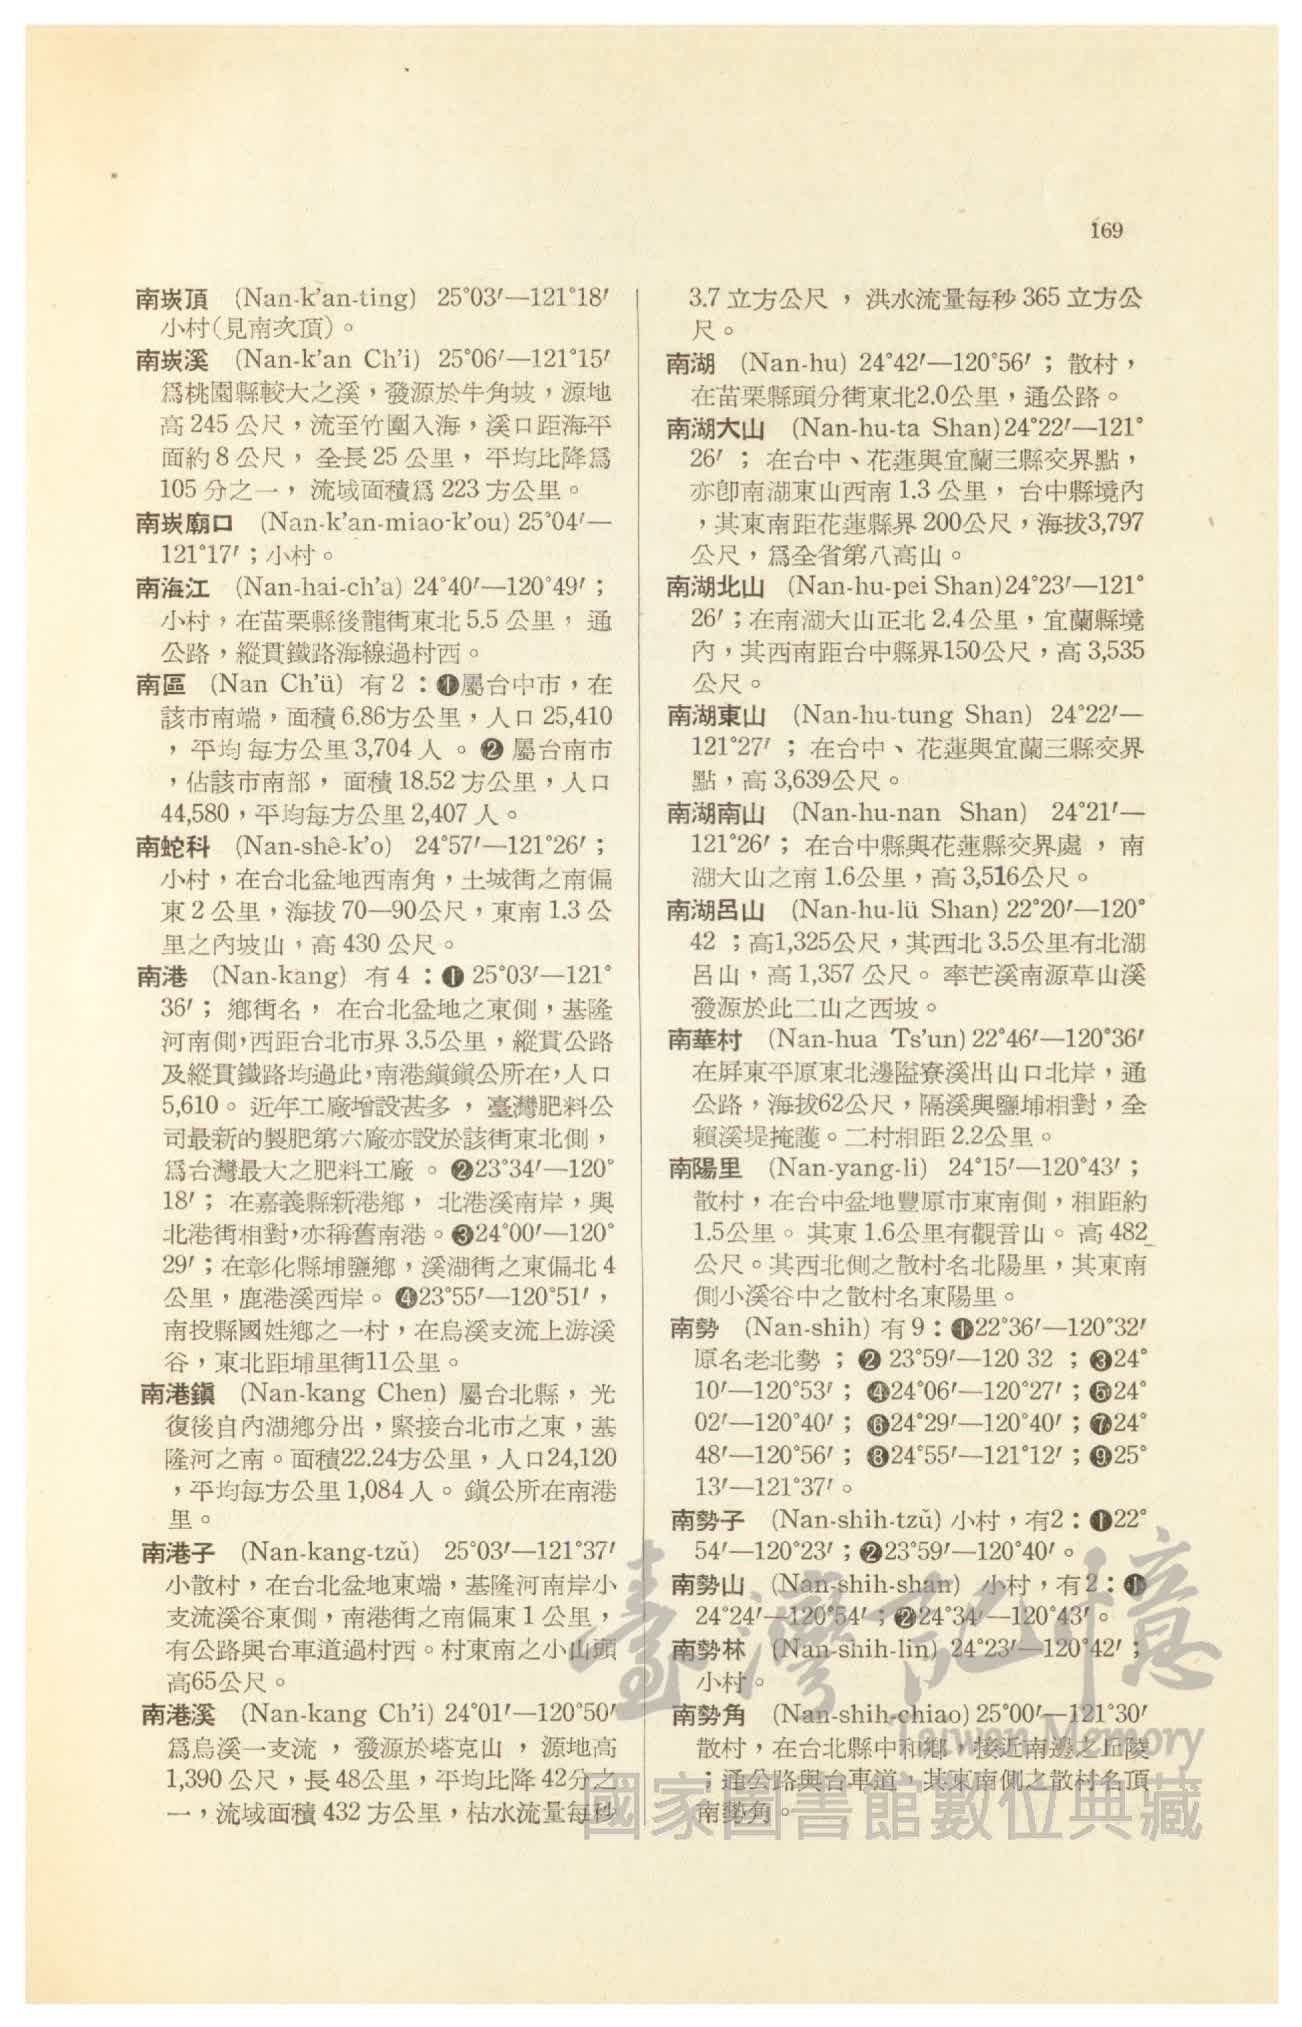 169
南崁頂 (Nan-k'an-ting) 25°03′—121°18′
小村(見南次頂)。
南崁溪 (Nan-k'an Ch'i) 25°06′—121°15′
爲桃園縣較大之溪，發源於牛角坡，源地
高 245 公尺，流至竹圍入海，溪口距海平
面約 8 公尺， 全長 25 公里， 平均比降爲
105 分之一， 流域面積爲 223 方公里。
南崁廟口 (Nan-k'an-miao-k'ou) 25°04′—
121°17′；小村。
南海江 (Nan-hai-ch'a) 24°40′—120°49′；
小村，在苗栗縣後龍街東北 5.5 公里， 通
公路，縱貫鐵路海線過村西。
南區 (Nan Ch'ü) 有 2：❶屬台中市，在
該市南端，面積 6.86方公里，人口 25,410
，平均 每方公里 3,704 人 。❷ 屬台南市
，佔該市南部， 面積 18.52 方公里，人口
44,580，平均每方公里 2,407 人。
南蛇科 (Nan-shê-k'o) 24°57′—121°26′；
小村，在台北盆地西南角，土城街之南偏
東 2 公里，海拔 70—90公尺，東南 1.3 公
里之內坡山，高 430 公尺。
南港 (Nan-kang) 有 4：❶ 25°03′—121°
36′； 鄉街名， 在台北盆地之東側，基隆
河南側，西距台北市界 3.5公里，縱貫公路
及縱貫鐵路均過此，南港鎭鎭公所在，人口
5,610。 近年工廠增設甚多 ， 臺灣肥料公
司最新的製肥第六廠亦設於該街東北側，
爲台灣最大之肥料工廠 。 ❷23°34′—120°
18′； 在嘉義縣新港鄉， 北港溪南岸，與
北港街相對，亦稱舊南港。❸24°00′—120°
29′；在彰化縣埔鹽鄉，溪湖街之東偏北 4
公里，鹿港溪西岸。 ❹23°55′—120°51′，
南投縣國姓鄉之一村，在烏溪支流上游溪
谷，東北距埔里街11公里。
南港鎭 (Nan-kang Chen) 屬台北縣， 光
復後自內湖鄉分出，緊接台北市之東，基
隆河之南。面積22.24方公里，人口24,120
，平均每方公里 1,084 人。 鎭公所在南港
里。
南港子 (Nan-kang-tzŭ) 25°03′—121°37′
小散村，在台北盆地東端，基隆河南岸小
支流溪谷東側，南港街之南偏東 1 公里，
有公路與台車道過村西。村東南之小山頭
高65公尺。
南港溪 (Nan-kang Ch'i) 24°01′—120°50′
爲烏溪一支流 ， 發源於塔克山 ， 源地高
1,390 公尺，長 48公里，平均比降 42分之
一，流域面積 432 方公里，枯水流量每秒
3.7 立方公尺 ， 洪水流量每秒 365 立方公
尺。
南湖 (Nan-hu) 24°42′—120°56′；散村，
在苗栗縣頭分街東北2.0公里，通公路。
南湖大山 (Nan-hu-ta Shan) 24°22′—121°
26′ ； 在台中、花蓮與宜蘭三縣交界點，
亦卽南湖東山西南 1.3 公里， 台中縣境內
，其東南距花蓮縣界 200公尺，海拔3,797
公尺，爲全省第八高山。
南湖北山 (Nan-hu-pei Shan) 24°23′—121°
26′；在南湖大山正北 2.4公里，宜蘭縣境
內，其西南距台中縣界150公尺，高 3,535
公尺。
南湖東山 (Nan-hu-tung Shan) 24°22′—
121°27′ ； 在台中、 花蓮與宜蘭三縣交界
點，高 3,639公尺。
南湖南山 (Nan-hu-nan Shan) 24°21′—
121°26′； 在台中縣與花蓮縣交界處 ， 南
湖大山之南 1.6公里，高 3,516公尺。
南湖呂山 (Nan-hu-lü Shan) 22°20′—120°
42 ；高1,325公尺，其西北 3.5公里有北湖
呂山，高 1,357 公尺。 率芒溪南源草山溪
發源於此二山之西坡。
南華村 (Nan-hua Ts'un) 22°46′—120°36′
在屏東平原東北邊隘寮溪出山口北岸，通
公路，海拔62公尺，隔溪與鹽埔相對，全
賴溪堤掩護。二村相距 2.2公里。
南陽里 (Nan-yang-li) 24°15′—120°43′；
散村，在台中盆地豐原市東南側，相距約
1.5公里。 其東 1.6公里有觀音山。 高 482
公尺。其西北側之散村名北陽里，其東南
側小溪谷中之散村名東陽里。
南勢 (Nan-shih) 有 9：❶22°36′—120°32′
原名老北勢 ； ❷ 23°59′—120 32 ；❸24°
10′—120°53′； ❹24°06′—120°27′；❺24°
02′—120°40′； ❻24°29′—120°40′；❼24°
48′—120°56′； ❽24°55′—121°12′；❾25°
13′—121°37′。
南勢子 (Nan-shih-tzŭ) 小村，有2：❶22°
54′—120°23′；❷23°59′—120°40′。
南勢山 (Nan-shih-shan) 小村，有 2：❶
24°24′—120°54′；❷24°34′—120°43′。
南勢林 (Nan-shih-lin) 24°23′—120°42′；
小村。
南勢角 (Nan-shih-chiao) 25°00′—121°30′
散村，在台北縣中和鄉，接近南邊之丘陵
；通公路與台車道，其東南側之散村名頂
南勢角。
臺灣記憶
Taiwan Memory
國家圖書館數位典藏